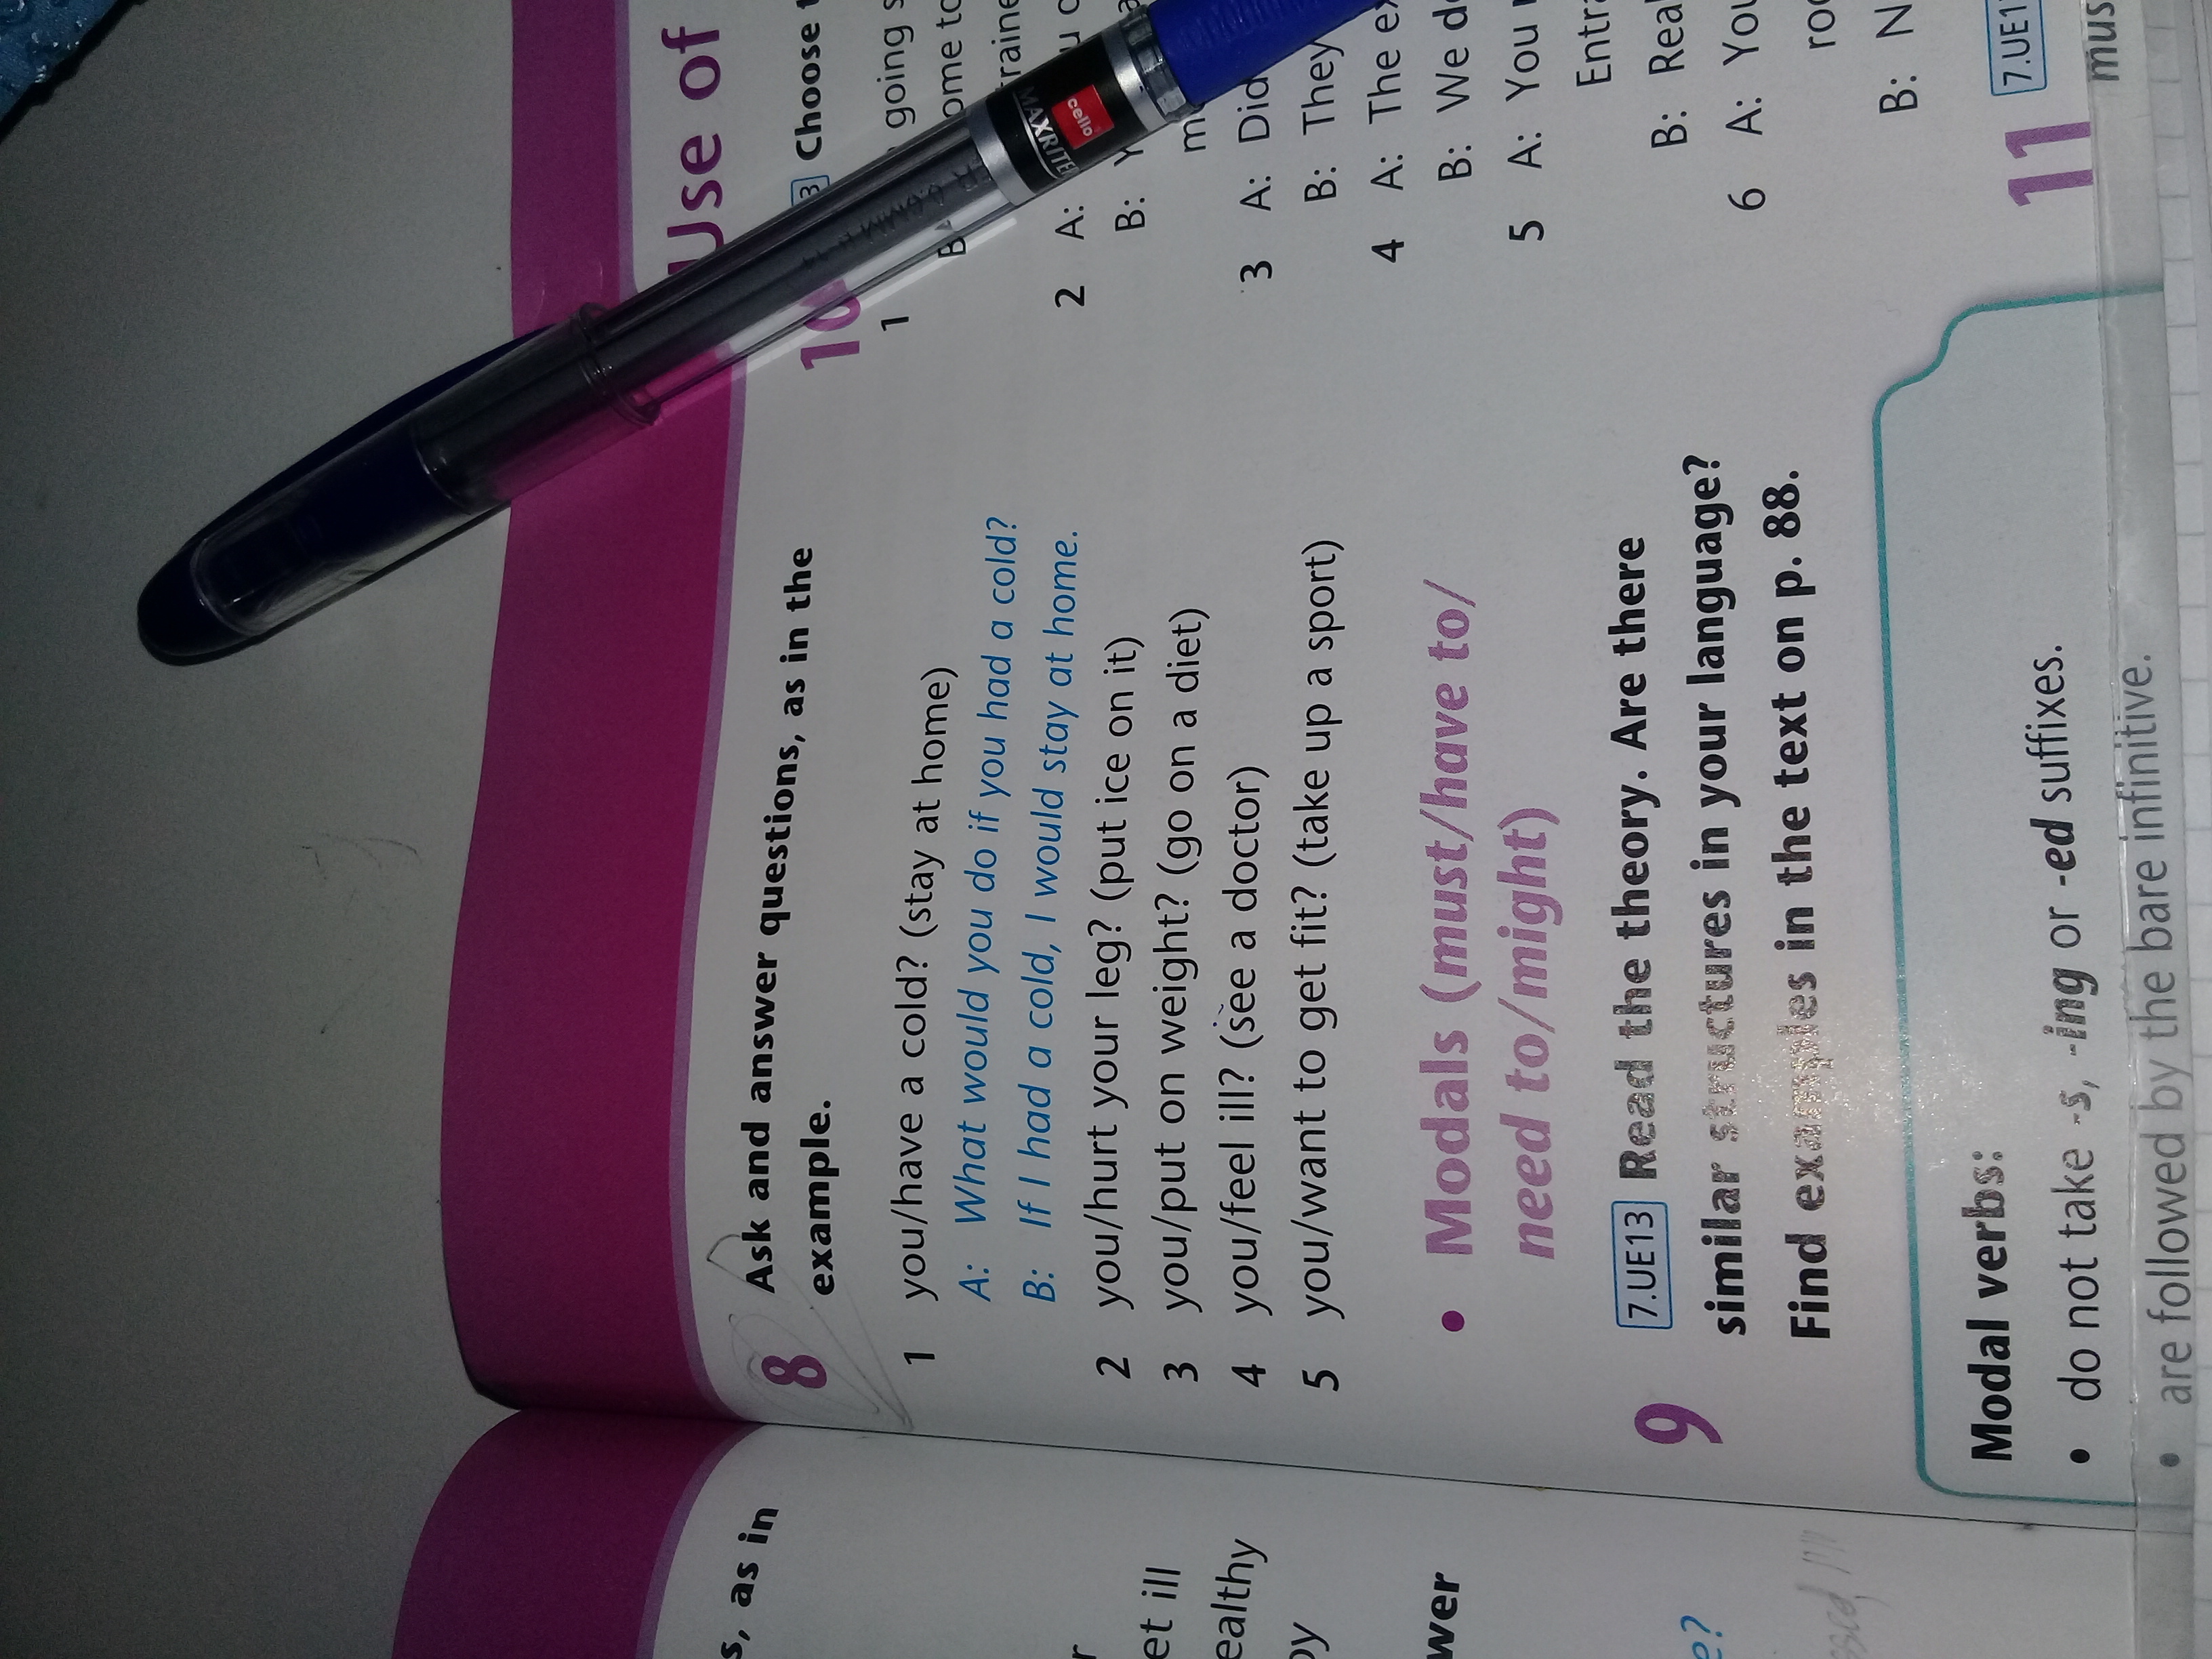 s, as in
et ill
ealthy
wer
e?
8 Ask and answer questions, as in the
example.
1 you/have a cold? (stay at home)
A: What would you do if you had a cold?
B: If I had a cold, I would stay at home.
2 you/hurt your leg? (put ice on it)
3 you/put on weight? (go on a diet)
4 you/feel ill? (see a doctor)
5 you/want to get fit? (take up a sport)
• Modals (must/have to/
need to/might)
9 7.UE13 Read the theory. Are there
similar structures in your language?
Find examples in the text on p. 88.
Modal verbs:
• do not take -s, -ing or -ed suffixes.
• are followed by the bare infinitive.
Use of
10 3 Choose
1 going s
B ome to
traine
2 A: u
B: Y
m
3 A: Did
B: They
4 A: The ex
B: We d
5 A: You
Entra
B: Real
6 A: You
roo
B: N
11 7.UE1
mus
cello
MAXRITER